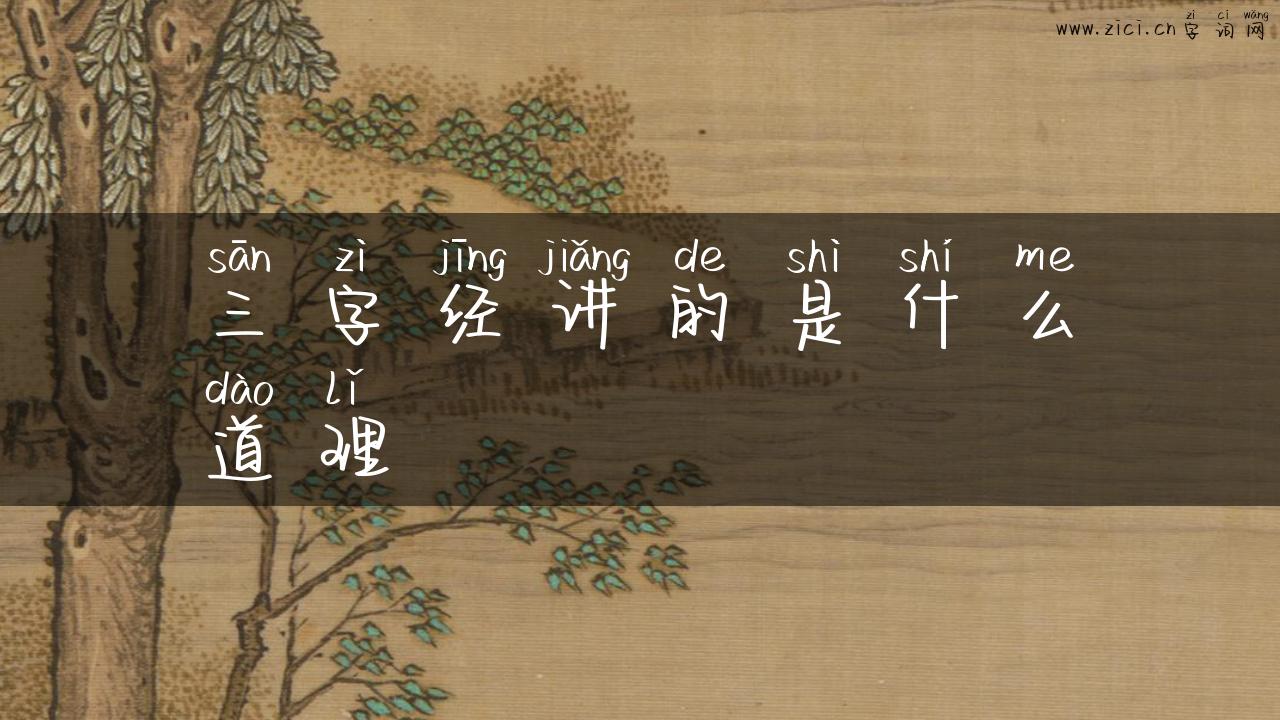 zì cí wǎng
www.zici.cn 字词网
sān zì jīng jiǎng de shì shí me
三字经讲的是什么
dào lǐ
道理